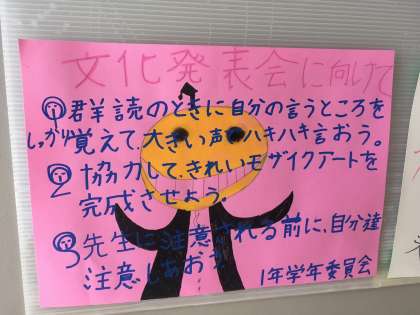 文化発表会に向けて
①群読のときに自分の言うところを
しっかり覚えて、大きい声でハキハキ言おう。
②協力して、きれいモザイクアートを
完成させよう。
③先生に注意される前に、自分達
注意しあおう
1年学年委員会